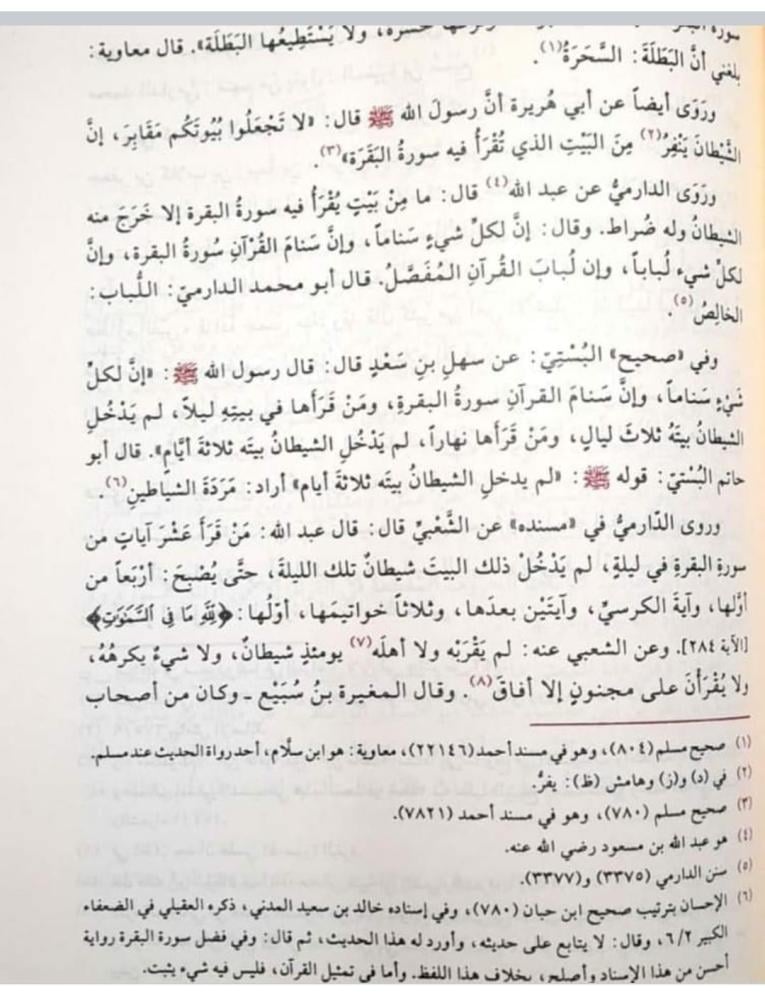 ولا يَسْتَطِيعُها البَطَلَة». قال معاوية:
بلغني أنَّ البَطَلَةَ: السَّحَرَةُ(١).
ورَوَى أيضاً عن أبي هُريرة أنَّ رسولَ الله ﷺ قال: «لا تَجْعَلُوا بُيُوتَكُم مَقَابِرَ، إنَّ
الشَّيْطانَ يَنْفِرُ(٢) مِنَ البَيْتِ الذي تُقْرَأُ فيه سورةُ البَقَرَة»(٣).
ورَوَى الدارميُّ عن عبد الله(٤) قال: ما مِنْ بَيْتٍ يُقْرَأُ فيه سورةُ البقرة إلا خَرَجَ منه
الشيطانُ وله ضُراط. وقال: إنَّ لكلِّ شيءٍ سَناماً، وإنَّ سَنامَ القُرْآنِ سُورةُ البقرة، وإنَّ
لكلِّ شيء لُباباً، وإن لُبابَ القُرآنِ المُفَصَّلُ. قال أبو محمد الدارميّ: اللُّباب:
الخالِصُ(٥).
وفي «صحيح» البُسْتِيّ: عن سهلِ بنِ سَعْدٍ قال: قال رسول الله ﷺ: «إنَّ لكلِّ
شَيْءٍ سَناماً، وإنَّ سَنامَ القرآنِ سورةُ البقرةِ، ومَنْ قَرَأَها في بيتِهِ ليلاً، لم يَدْخُلِ
الشيطانُ بيتَهُ ثلاثَ ليالٍ، ومَنْ قَرَأَها نهاراً، لم يَدْخُلِ الشيطانُ بيتَه ثلاثةَ أيَّام». قال أبو
حاتم البُسْتيّ: قوله ﷺ: «لم يدخلِ الشيطانُ بيتَه ثلاثةَ أيام» أراد: مَرَدَةَ الشياطين(٦).
وروى الدَّارميُّ في «مسنده» عن الشَّعْبيِّ قال: قال عبد الله: مَنْ قَرَأَ عَشْرَ آياتٍ من
سورةِ البقرةِ في ليلةٍ، لم يَدْخُلْ ذلك البيتَ شيطانٌ تلك الليلةَ، حتَّى يُصْبِحَ: أرْبَعاً من
أوَّلها، وآيَةَ الكرسيِّ، وآيتَيْن بعدَها، وثلاثاً خواتيمَها، أوّلُها: ﴿لِلَّهِ مَا فِي السَّمَوَتِ﴾
[الآية ٢٨٤]. وعن الشعبي عنه: لم يَقْرَبْه ولا أهلَه(٧) يومئذٍ شيطانٌ، ولا شيءٌ يكرهُهُ،
ولا يُقْرَأْنَ على مجنونٍ إلا أفاقَ(٨). وقال المغيرة بنُ سُبَيْع ـ وكان من أصحاب
(١) صحيح مسلم (٨٠٤)، وهو في مسند أحمد (٢٢١٤٦)، معاوية: هو ابن سلَّام، أحد رواة الحديث عند مسلم.
(٢) في (د) و(ز) وهامش (ظ): يفرُّ.
(٣) صحيح مسلم (٧٨٠)، وهو في مسند أحمد (٧٨٢١).
(٤) هو عبد الله بن مسعود رضي الله عنه.
(٥) سنن الدارمي (٣٣٧٥) و(٣٣٧٧).
(٦) الإحسان بترتيب صحيح ابن حبان (٧٨٠)، وفي إسناده خالد بن سعيد المدني، ذكره العقيلي في الضعفاء
الكبير ٦/٢، وقال: لا يتابع على حديثه، وأورد له هذا الحديث، ثم قال: وفي فضل سورة البقرة رواية
أحسن من هذا الإسناد وأصلح، بخلاف هذا اللفظ. وأما في تمثيل القرآن، فليس فيه شيء يثبت.